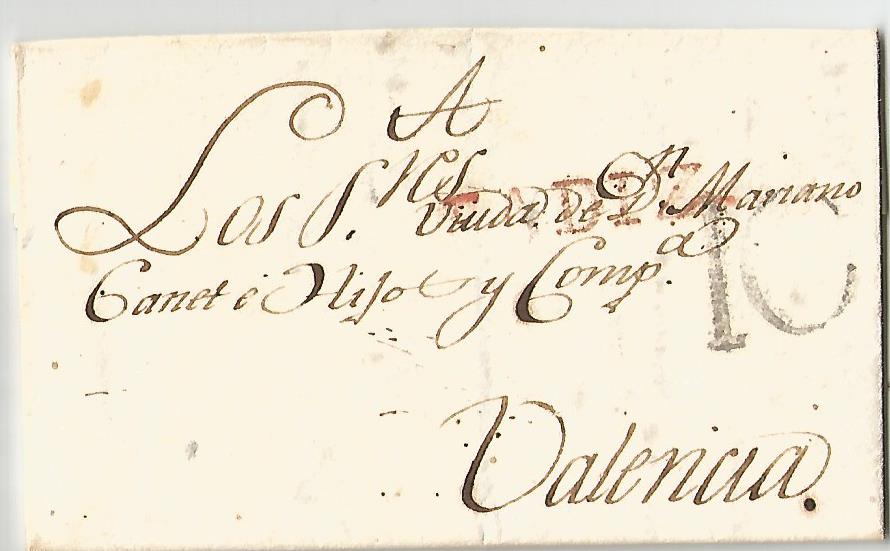 A
Los S.res Viuda de Dn Mariano
Canet é Hijo y Compa.
10
Valencia.